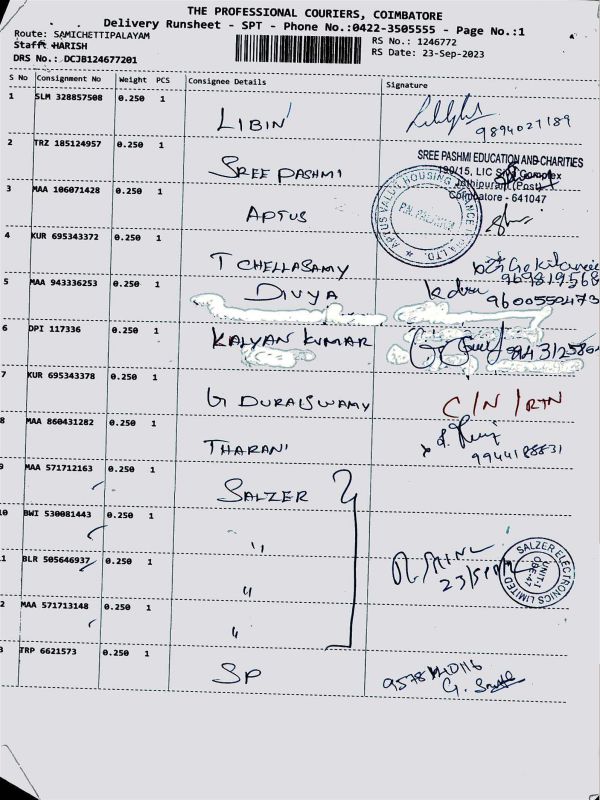 THE PROFESSIONAL COURIERS, COIMBATORE
Delivery Runsheet - SPT - Phone No.:0422-3505555 - Page No.:1
Route: SAMICHETTIPALAYAM
Stafft :HARISH
DRS No.: DCJB124677201
RS No.: 1246772
RS Date: 23-Sep-2023
S No Consignment No Weight PCS Consignee Details Signature
1 SLM 328857508 0.250 1 LIBIN 9894027189
2 TRZ 185124957 0.250 1 SREE PASHMI
SREE PASHMI EDUCATION AND CHARITIES
190/15, LIC Complex
(Post)
Coimbatore - 641047
3 MAA 106071428 0.250 1 APTUS
APTUS VALUE HOUSING FINANCE INDIA LTD.
4 KUR 695343372 0.250 1 T CHELLASAMY
969819568
5 MAA 943336253 0.250 1 DIVYA 9600550473
6 DPI 117336 0.250 1 KALYAN KUMAR
7 KUR 695343378 0.250 1 G DURAISWAMY C/N / RTN
8 MAA 860431282 0.250 1 THARANI 9944188831
9 MAA 571712163 0.250 1 SALZER
10 BWI 530081443 0.250 1 "
11 BLR 505646937 0.250 1 "
SALZER ELECTRONICS LIMITED
UNIT-I
CBE-47
2 MAA 571713148 0.250 1 "
3 TRP 6621573 0.250 1 SP
G.